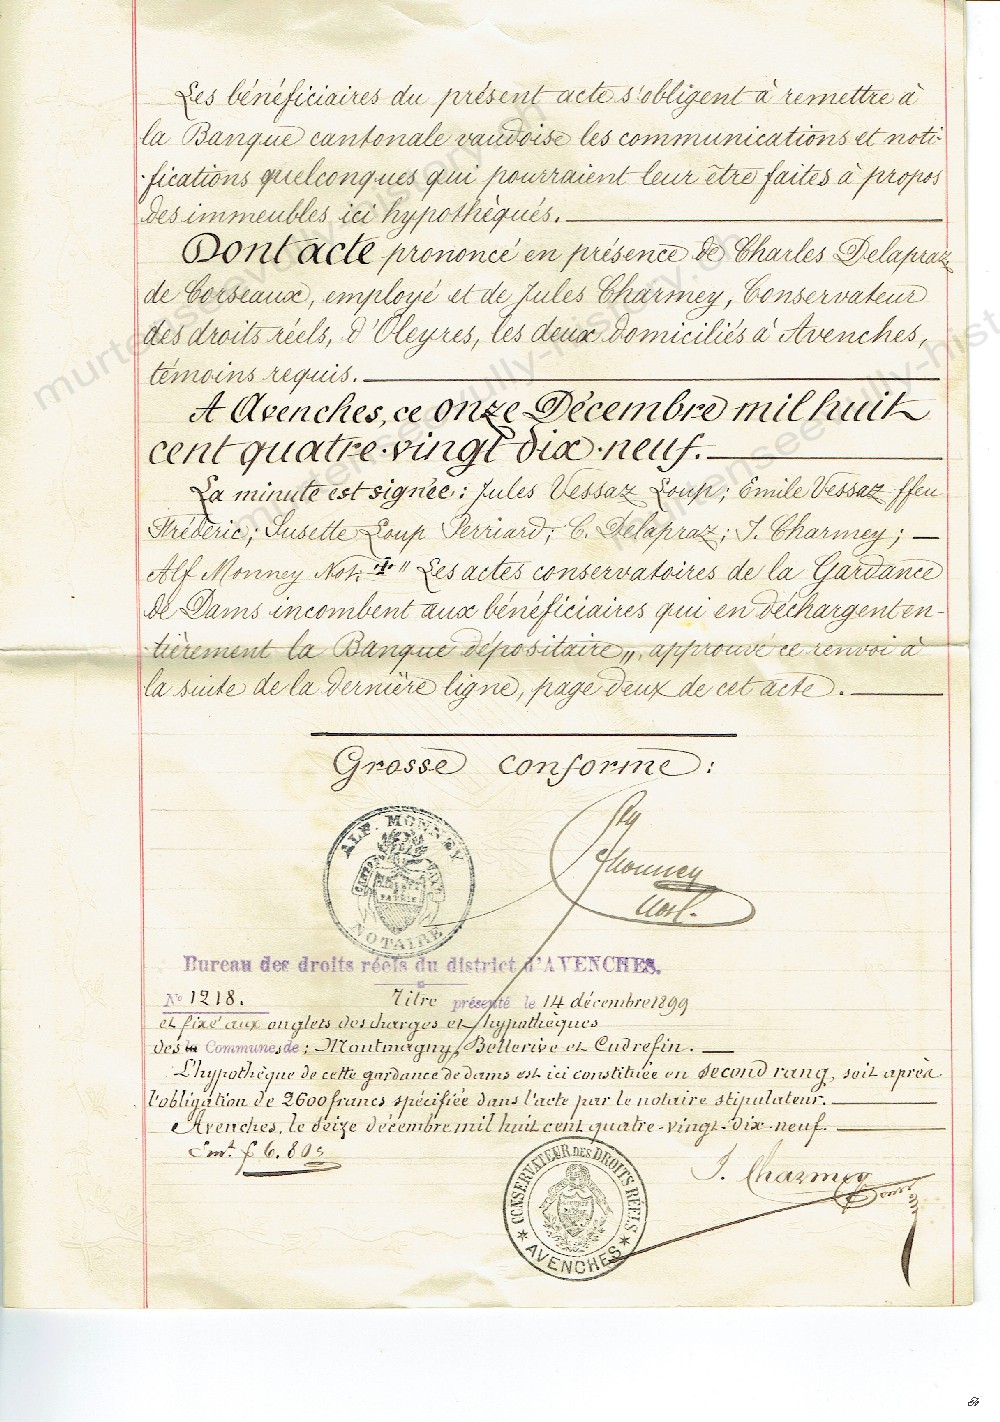 Les bénéficiaires du présent acte s'obligent à remettre à
la Banque cantonale vaudoise les communications et noti-
fications quelconques qui pourraient leur être faites à propos
des immeubles ici hypothéqués.
Dont acte prononcé en présence de Charles Delapraz
de Corseaux, employé et de Jules Charmey, Conservateur
des droits réels, d'Oleyres, les deux domiciliés à Avenches,
témoins requis.
A Avenches, ce onze Décembre mil huit
cent quatre-vingt dix-neuf.
La minute est signée: Jules Vessaz Loup; Emile Vessaz ffeu
Fréderic; Susette Loup Perriard; C. Delapraz; J. Charmey;
Alf Monney Not. "I" "Les actes conservatoires de la Gardance
de Dams incombent aux bénéficiaires qui en déchargent en-
tièrement la Banque dépositaire", approuvé ce renvoi à
la suite de la dernière ligne, page deux de cet acte.
Grosse conforme:
ALF. MONNEY
CANTON DE VAUD
LIBERTÉ ET PATRIE
NOTAIRE
Monney
Not.
Bureau des droits réels du district d'AVENCHES.
No 1218. Titre présenté le 14 décembre 1899
et fixé aux onglets des charges et hypothèques
des la Communes de: Montmagny, Bellerive et Cudrefin.
L'hypothèque de cette gardance de dams est ici constituée en second rang, soit après
l'obligation de 2600 francs spécifiée dans l'acte par le notaire stipulateur.
Avenches, le seize décembre mil huit cent quatre-vingt-dix-neuf.
Emt. f. 6.80
J. Charmey
CONSERVATEUR DES DROITS RÉELS
AVENCHES
murtenseevully-history.ch
murtenseevully-history.ch
murtenseevully-hist